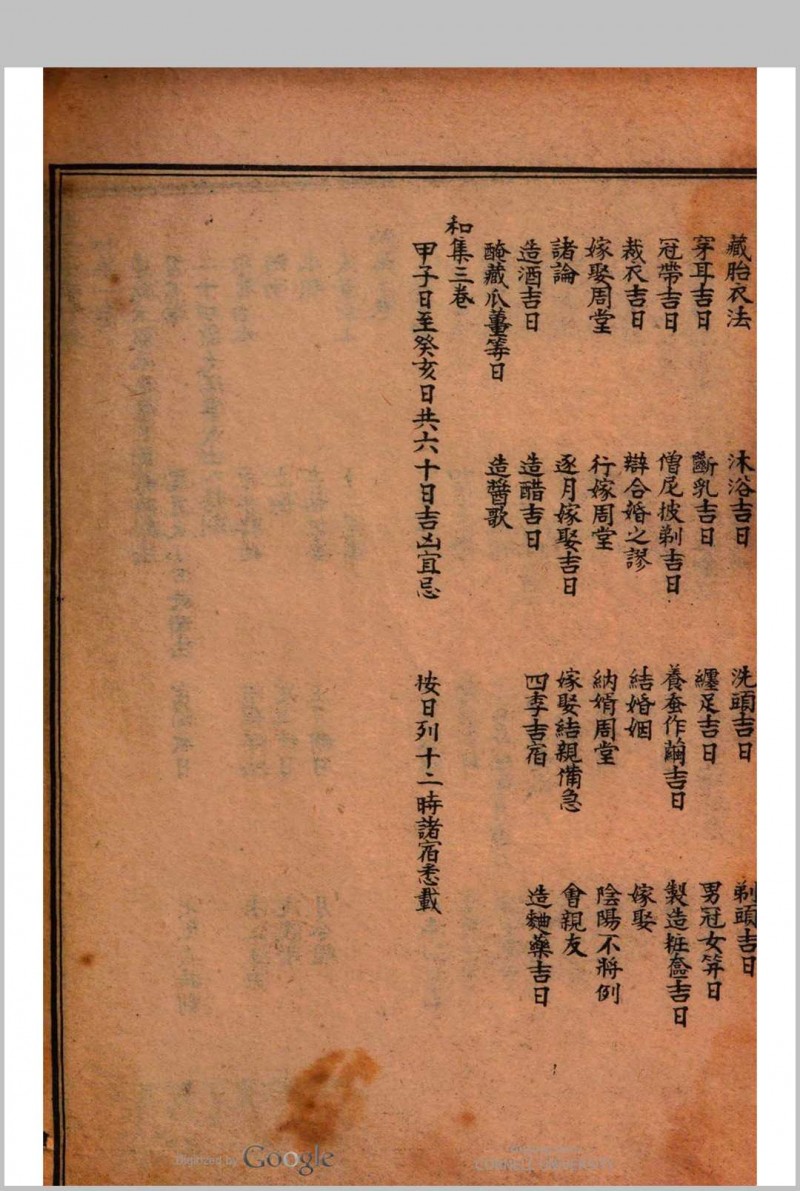 藏胎衣法　沐浴吉日　洗頭吉日　剃頭吉日
穿耳吉日　斷乳吉日　纏足吉日　男冠女笄日
冠帶吉日　僧尼披剃吉日　養蚕作繭吉日　製造粧奩吉日
裁衣吉日　辯合婚之謬　結婚姻　嫁娶
嫁娶周堂　行嫁周堂　納婿周堂　陰陽不將例
諸論　逐月嫁娶吉日　嫁娶結親備急　會親友
造酒吉日　造醋吉日　四季吉宿　造麯藥吉日
醃藏瓜薑等日　造醬歌
和集三卷
甲子日至癸亥日共六十日吉凶宜忌　按日列十二時諸宿悉載
Digitized by Google
CORNELL UNIVERSITY